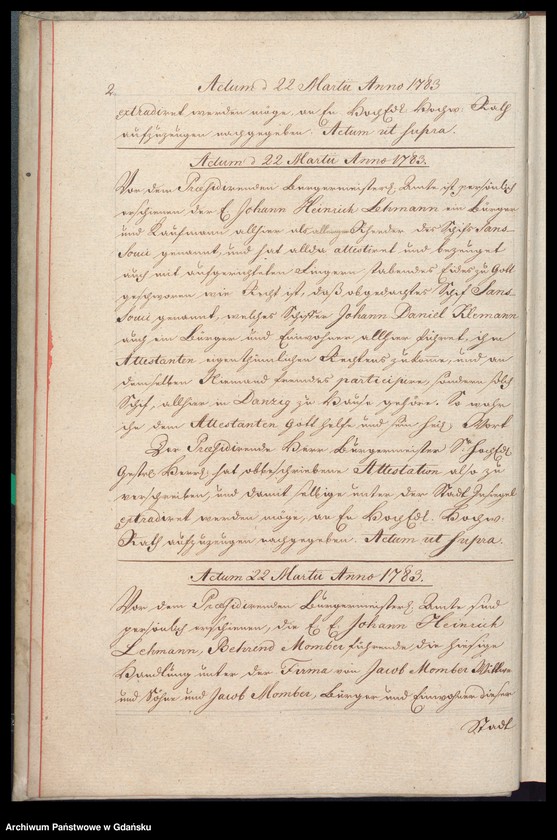 2. Actum d 22 Martii Anno 1783
extradiret werden möge, an En HochEdl. Hochw: Rath
aufzuzeugen nachgegeben. Actum ut supra.
Actum d 22 Martii Anno 1783.
Vor dem Præsidirenden Bürgermeisterl. Amte ist persönlich
erschienen der E Johann Heinrich Lehmann ein Bürger
und Kaufmann allhier als alleiniger Rheeder des Schifs Sans
Souci genannt, und hat allda attestiret und bezeuget
auch mit aufgerichteten Fingern stabendes Eides zu Gott
geschworen wie Recht ist, daß obgedachtes Schif Sans
Souci genannt, welches Schiffer Johann Daniel Klemann
auch ein Bürger und Einwohner allhier führet, ihm
Attestanten eigenthümlichen Rechtens zukomme, und an
demselben Niemand fremdes participire, sondern solch
Schif, allhier in Danzig zu Hause gehöre. So wahr
ihm dem Attestanten Gott helfe und sein heil. Wort
Der Præsidirende Herr Bürgermeister Sr HochEdl.
Gestr. Herrl. hat obbeschriebene Attestation also zu
verschreiben, und damit selbige unter der Stadt Insiegel
extradiret werden möge, an En HochEdl. Hochw:
Rath aufzuzeugen nachgegeben. Actum ut supra.
Actum 22 Martii Anno 1783.
Vor dem Præsidirenden Bürgermeisterl. Amte sind
persönlich erschienen, die E. E. Johann Heinrich
Lehmann, Behrend Momber führende die hiesige
Handlung unter der Firma von Jacob Momber Wittwe
und Söhne und Jacob Momber, Bürger und Einwohner dieser
Stadt
Archiwum Państwowe w Gdańsku